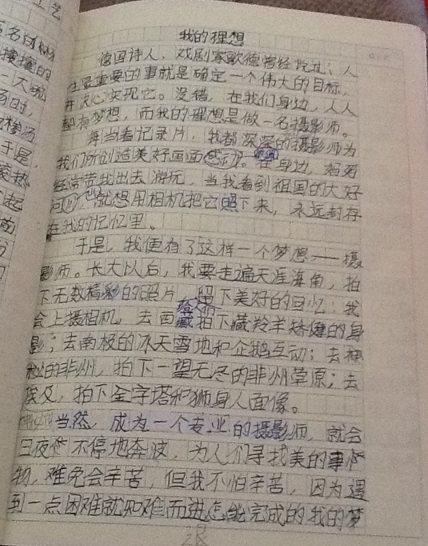 我的理想
德国诗人、戏剧家歌德曾经说过：人
生最重要的事就是确定一个伟大的目标，
并决心实现它。没错，在我们身边，人人
都有梦想，而我的理想是做一名摄影师。
每当看记录片，我都深深的摄影师为
我们所创造美好画面感动。在身边，妈妈
经常带我出去游玩，当我看到祖国的大好
河山，就想用相机把它照下来，永远封存
在我的记忆里。
于是，我便有了这样一个梦想——摄
影师。长大以后，我要走遍天涯海角，拍
下无数精彩的照片，留下美好的回忆：我
会上摄相机，去西藏拍下藏羚羊矫健的身
影；去南极的冰天雪地和企鹅互动；去神
秘的非州，拍下一望无尽的非州草原；去
埃及，拍下金字塔和狮身人面像。
当然，成为一个专业的摄影师，就会
日夜不停地奔波，为人们寻找美的事
物，难免会辛苦，但我不怕辛苦，因为遇
到一点困难就知难而进怎能完成的我的梦